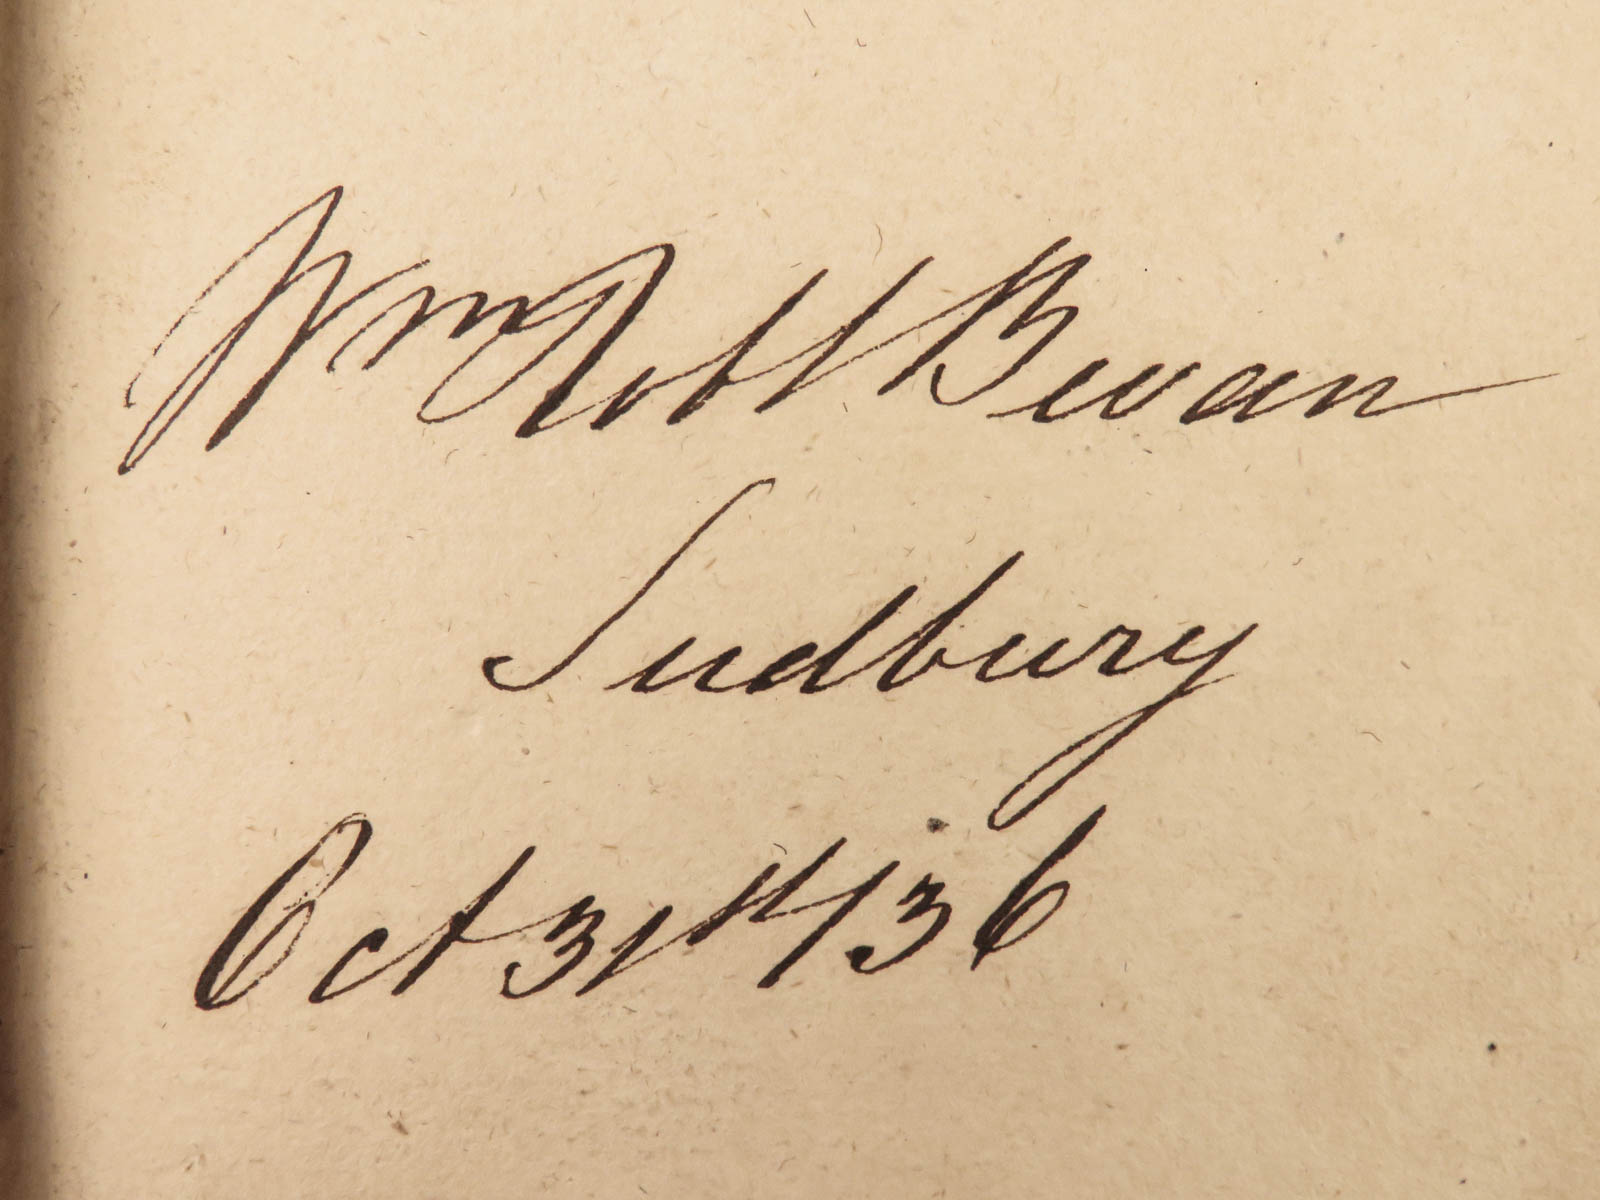 Wm Robt Bevan
Sudbury
Oct 31st /36